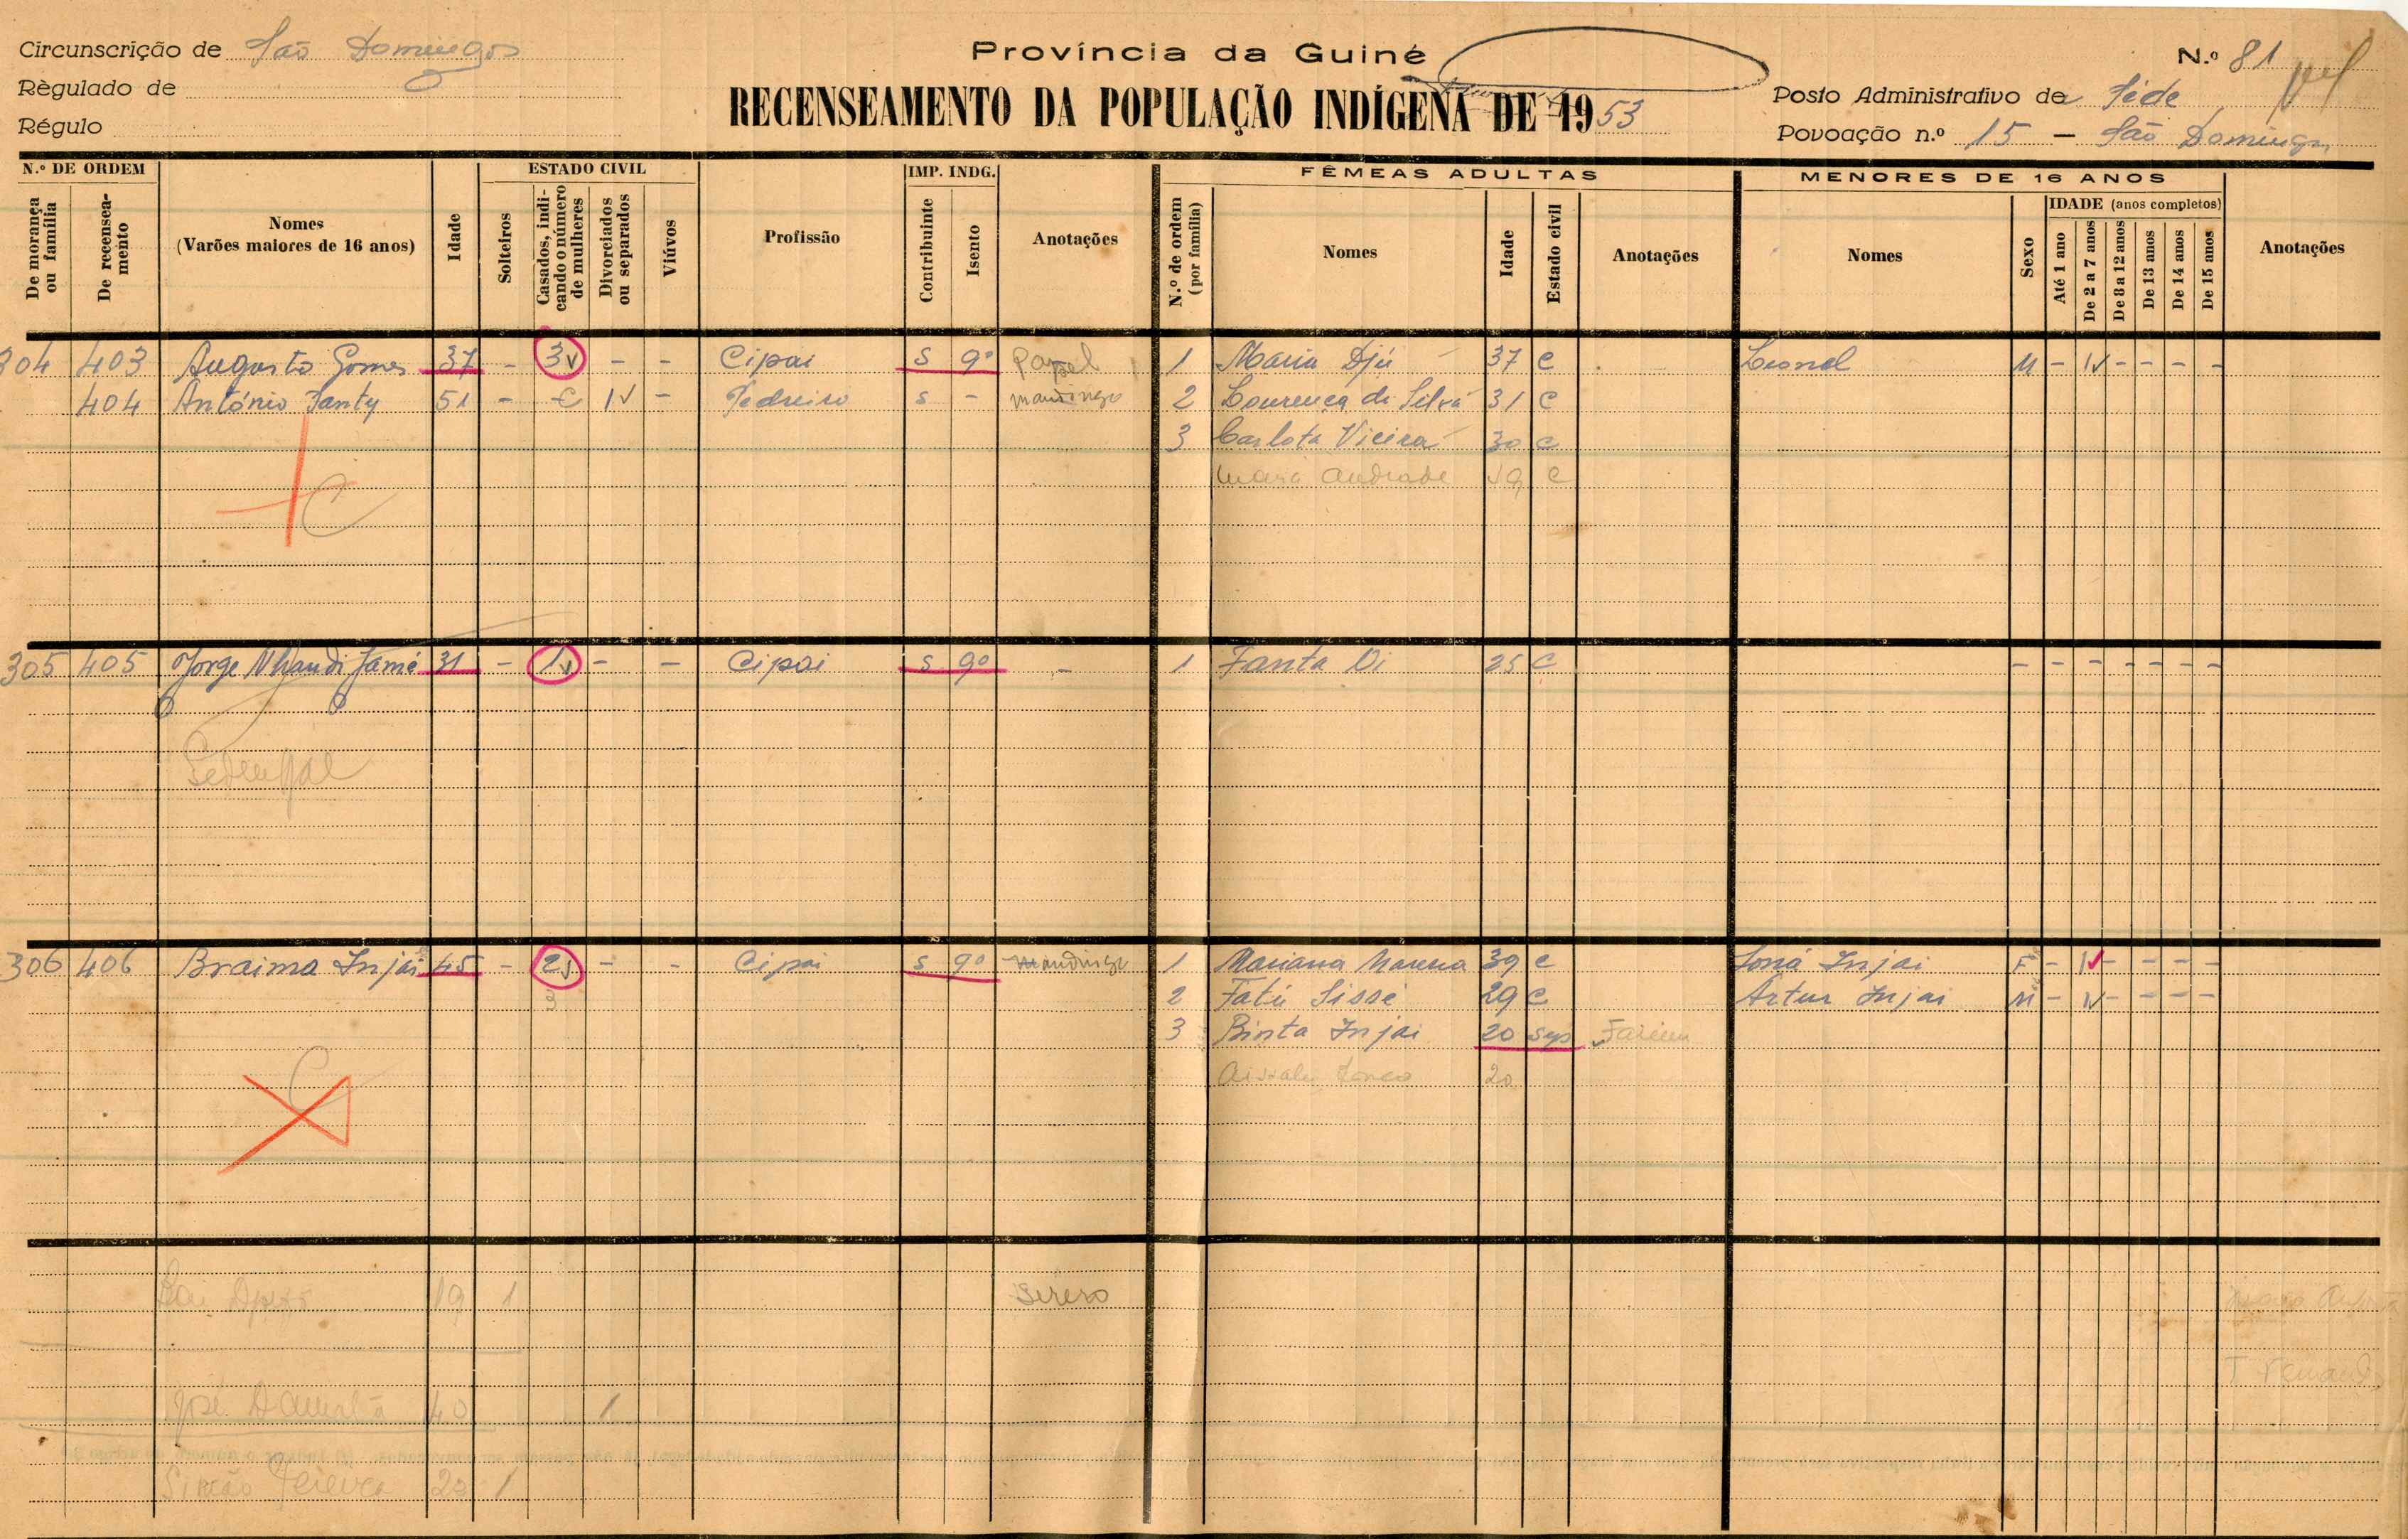 Circunscrição de São Domingos
Província da Guiné
N.º 81
Règulado de
RECENSEAMENTO DA POPULAÇÃO INDÍGENA DE 1953
Posto Administrativo de Séde
Régulo
Povoação n.º 15 — São Domingos
N.º DE ORDEM
ESTADO CIVIL
IMP. INDG.
FÊMEAS ADULTAS
MENORES DE 16 ANOS
De morança ou família
De recenseamento
Nomes
(Varões maiores de 16 anos)
Idade
Solteiros
Casados, indicando o número de mulheres
Divorciados ou separados
Viúvos
Profissão
Contribuinte
Isento
Anotações
N.º de ordem (por família)
Nomes
Idade
Estado civil
Anotações
Nomes
Sexo
IDADE (anos completos)
Até 1 ano
De 2 a 7 anos
De 8 a 12 anos
De 13 anos
De 14 anos
De 15 anos
Anotações
304 403 Augusto Gomes 37 - 3 - - Cipai s 9º Papel 1 Maria Djú 37 C Leonel M - 1 - - - -
404 António Fanty 51 - C 1 - Pedreiro s - mandinga 2 Lourença da Silva 31 C
3 Carlota Vieira 30 C
Maria Andrade 19 C
305 405 Jorge Nhandi Jamé 31 - 1 - - Cipai s 9º - 1 Fanta Di 25 C - - - - - - -
306 406 Braima Injai 45 - 2 - - Cipai s 9º mandinga 1 Mariana 39 C Soná Injai F - 1 - - - -
3 2 Fatú Sissé 29 C Artur Injai M - 1 - - - -
3 Binta Injai 20 sep Farim
20
19 1 Serero
José 40 1
Simão 1